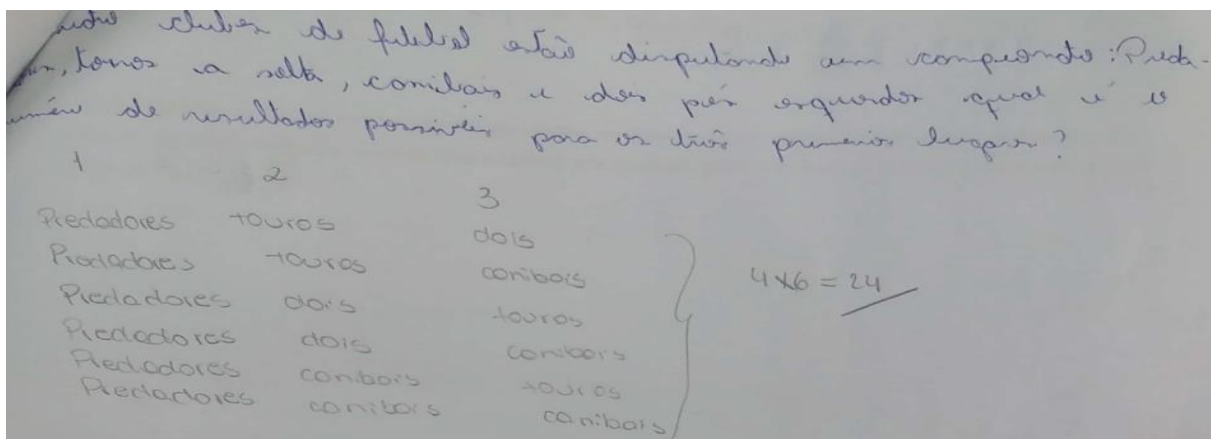 clubes de futebol estão disputando um campeonato: Preda-
touros a solta, canibais e dois pés esquerdos qual é o
de resultados possíveis para os três primeiros lugares?
1 2 3
Predadores touros dois
Predadores touros canibais
Predadores dois touros
Predadores dois canibais
Predadores canibais touros
Predadores canibais canibais
4x6 = 24